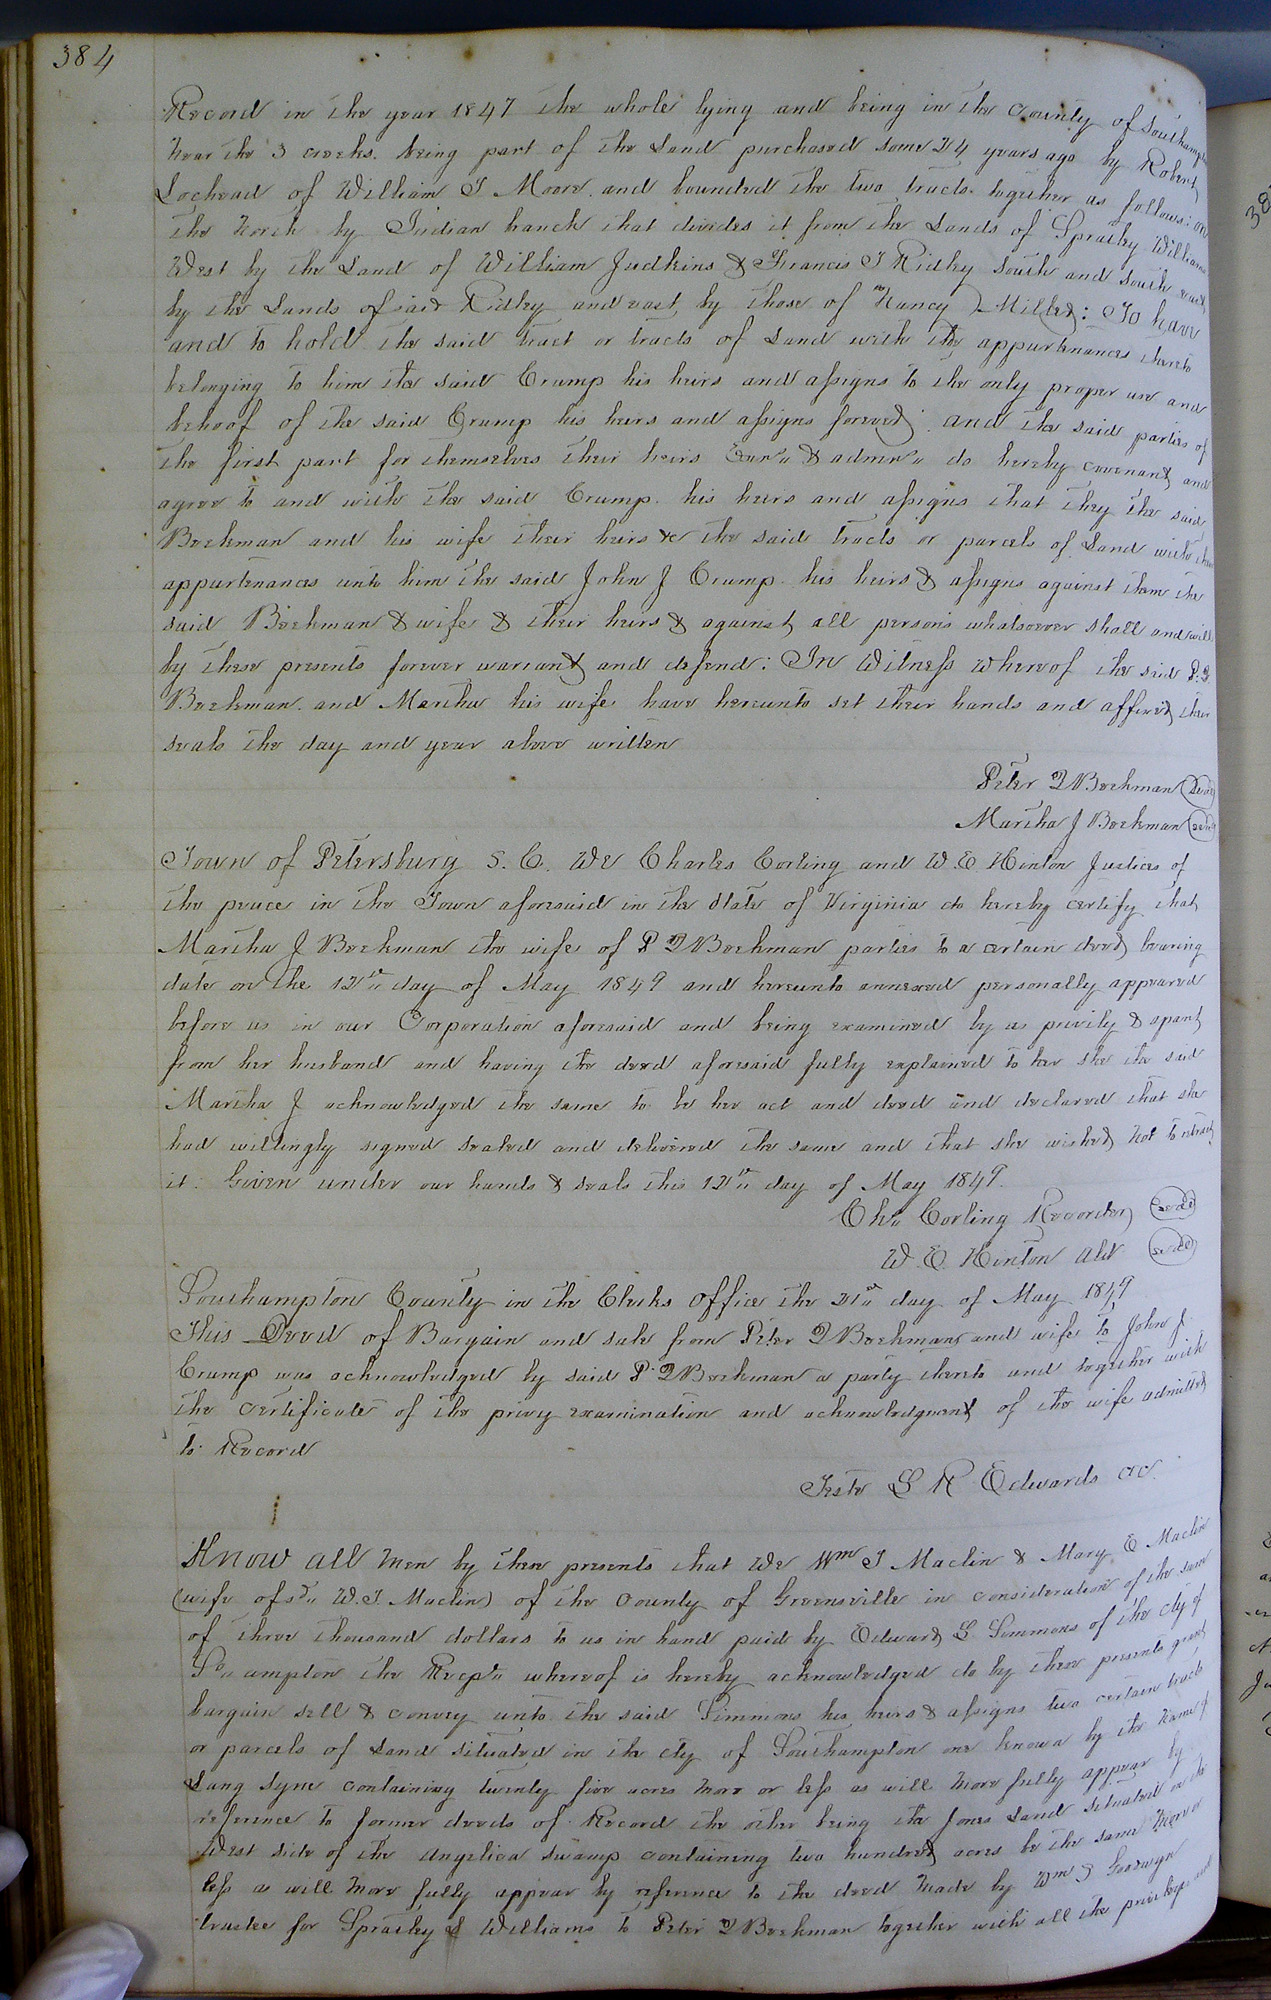 384
Record in the year 1847 the whole lying and being in the County of Southampton
near the 3 creeks. being part of the Land purchased some 24 years ago by Robert
Lochead of William T Moore. and bounded the two tracts together as follows: on
the North by Indian branch that divides it from the Lands of Spratley Williams
West by the Land of William Judkins & Francis T Ridley South and South east
by the Lands of said Ridley and east by those of Nancy Miller: To have
and to hold the said tract or tracts of Land with the appurtenances thereto
belonging to him the said Crump his heirs and assigns to the only proper use and
behoof of the said Crump his heirs and assigns forever: and the said parties of
the first part for themselves their heirs Exors & admrs do hereby covenant and
agree to and with the said Crump. his heirs and assigns that they the said
Beekman and his wife their heirs &c the said tracts or parcels of Land with their
appurtenances unto him the said John J Crump his heirs & assigns against them the
said Beekman & wife & their heirs & against all persons whatsoever shall and will
by these presents forever warrant and defend: In Witness whereof the said P. Q.
Beekman. and Martha his wife have hereunto set their hands and affixed their
seals the day and year above written
Peter Q Beekman (Seal)
Martha J Beekman (seal)
Town of Petersburg S. C. We Charles Corling and W. E. Hinton Justices of
the peace in the Town aforesaid in the State of Virginia do hereby certify that
Martha J Beekman the wife of P Q Beekman parties to a certain deed bearing
date on the 12th day of May 1849 and hereunto annexed personally appeared
before us in our Corporation aforesaid and being examined by us privily & apart
from her husband and having the deed aforesaid fully explained to her she the said
Martha J acknowledged the same to be her act and deed and declared that she
had willingly signed sealed and delivered the same and that she wished not to retract
it: Given under our hands & seals this 12th day of May 1849.
Chs Corling Recorder (seal)
W. E. Hinton Ald (seal)
Southampton County in the Clerks Office the 21st day of May 1849
This Deed of Bargain and sale from Peter Q Beekman and wife to John J.
Crump was acknowledged by said P. Q Beekman a party thereto and together with
the certificate of the privy examination and acknowledgment of the wife admitted
to Record
Teste L R Edwards CC.
Know all men by these presents that We Wm T Maclin & Mary E Maclin
(wife of sd W. T Maclin) of the County of Greensville in consideration of the sum
of three thousand dollars to us in hand paid by Edward L Simmons of the cty of
So ampton the Recpt whereof is hereby acknowledged do by these presents grant
bargain sell & convey unto the said Simmons his heirs & assigns two certain tracts
or parcels of Land situated in the cty of Southampton one known by the name of
Lang Syne containing twenty five acres more or less as will more fully appear by
reference to former deeds of Record the other being the Jones Land situated on the
West side of the Angelica swamp containing two hundred acres be the same more or
less as will more fully appear by reference to the deed made by Wm S Goodwyn
trustee for Spratley & Williams to Peter Q Beekman together with all the privileges and